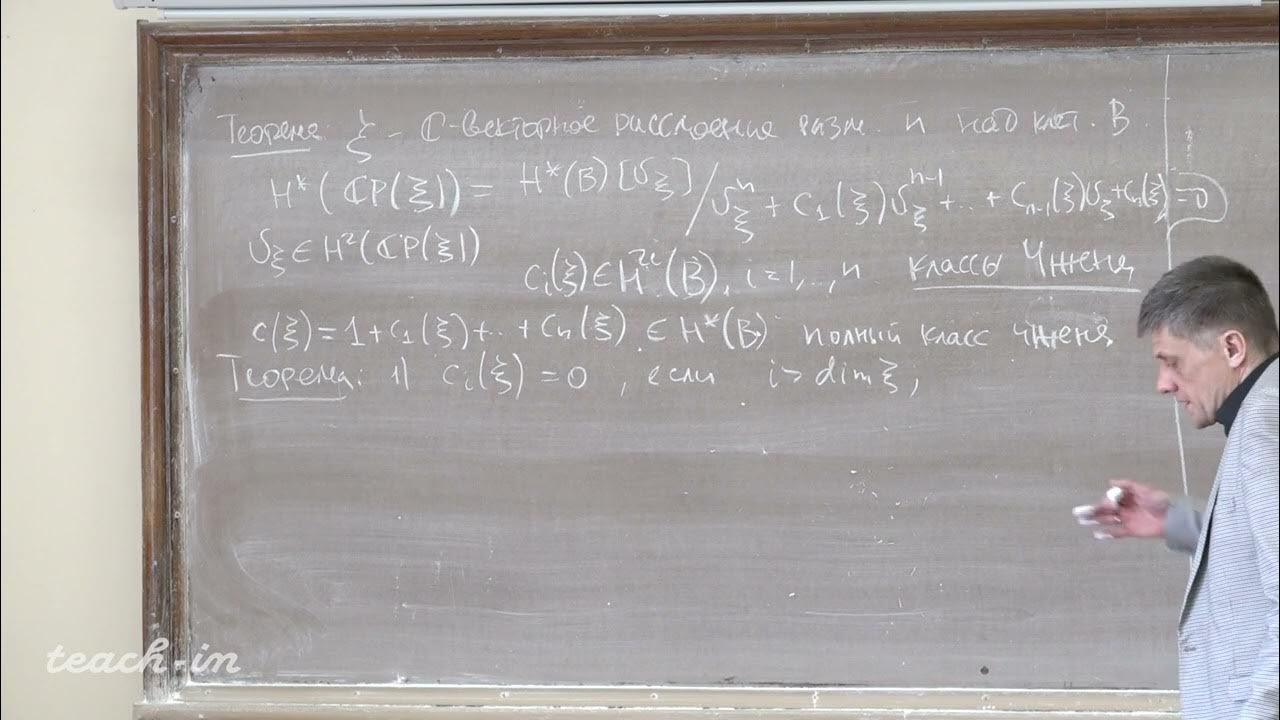 Теорема ξ - ℂ-векторное расслоение разм. n над клет. B.
H*(ℂP(ξ)) = H*(B)[v_ξ] / v_ξ^n + c_1(ξ)v_ξ^{n-1} + .. + c_{n-1}(ξ)v_ξ + c_n(ξ) = 0
v_ξ ∈ H²(ℂP(ξ))
c_i(ξ) ∈ H^{2i}(B), i=1,..,n классы Чженя
c(ξ) = 1 + c_1(ξ) + .. + c_n(ξ) ∈ H*(B) полный класс Чженя
Теорема: 1) c_i(ξ) = 0, если i > dim ξ;
teach-in